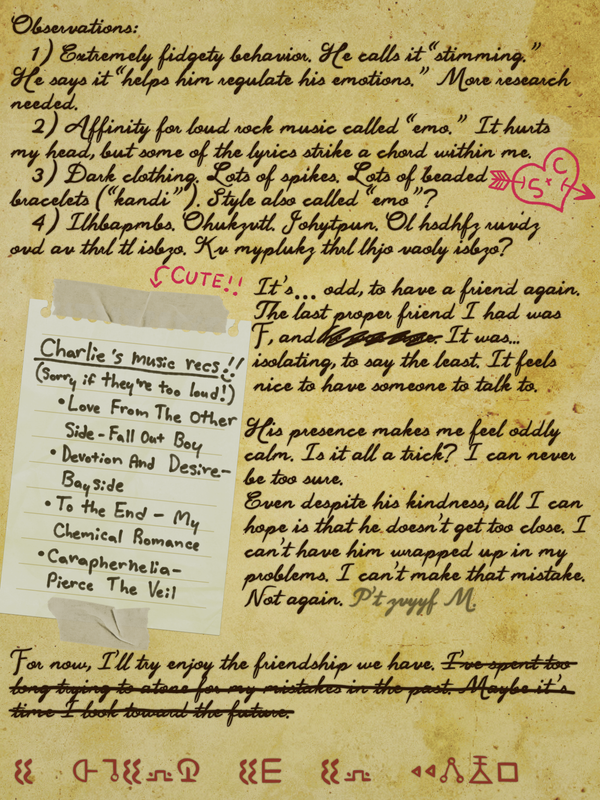 Observations:
1) Extremely fidgety behavior. He calls it "stimming."
He says it "helps him regulate his emotions." More research
needed.
2) Affinity for loud rock music called "emo." It hurts
my head, but some of the lyrics strike a chord within me.
3) Dark clothing. Lots of spikes. Lots of beaded
bracelets ("kandi"). Style also called "emo"?
4) Ilhbapmbs. Ohukzvtl. Johytpun. Ol hsdhfz ruvdz
ovd av thrl tl isbzo. Kv myplukz thrl lhjo vaoly isbzo?
C
S
CUTE!!
Charlie's music recs!!
(Sorry if they're too loud!)
• Love From The Other
Side - Fall Out Boy
• Devotion And Desire-
Bayside
• To the End - My
Chemical Romance
• Caraphernelia-
Pierce The Veil
It's... odd, to have a friend again.
The last proper friend I had was
F, and It was...
isolating, to say the least. It feels
nice to have someone to talk to.
His presence makes me feel oddly
calm. Is it all a trick? I can never
be too sure.
Even despite his kindness, all I can
hope is that he doesn't get too close. I
can't have him wrapped up in my
problems. I can't make that mistake.
Not again. P't zvyyf M.
For now, I'll try enjoy the friendship we have. I've spent too
long trying to atone for my mistakes in the past. Maybe it's
time I look toward the future.